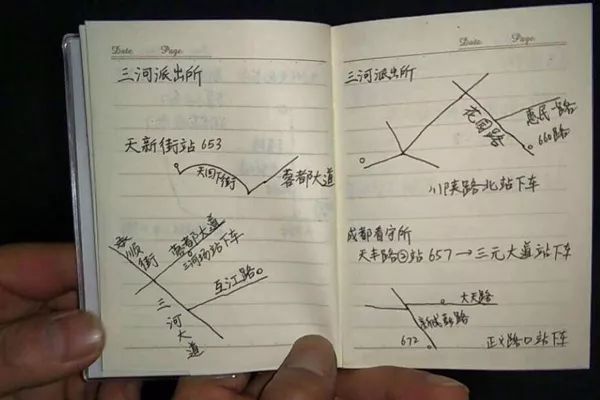 Date. Page.
三河派出所
天新街站 653
天回下街
蓉都大道
顺街
蓉都大道
三河场站下车
互江路
三河大道
Date. Page.
三河派出所
花园路
惠民一路
660路
川陕路北站下车
成都看守所
天丰路②站 657→三元大道站下车
大天路
672
正义路口站下车